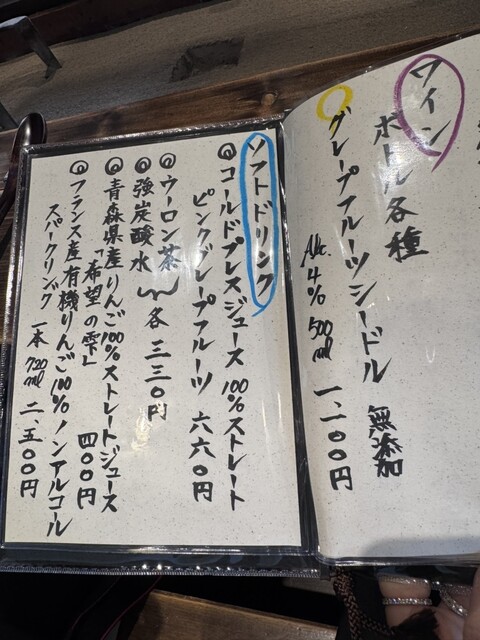 ワイン
ボトル各種
無添加
グレープフルーツシードル
Alc. 4% 500ml 一、一〇〇円
ソフトドリンク
コールドプレスジュース 100%ストレート
ピンクグレープフルーツ 六六〇円
ウーロン茶
強炭酸水
各 三三〇円
青森県産りんご100%ストレートジュース
「希望の雫」 四〇〇円
フランス産有機りんご100%ノンアルコール
スパークリング 一本 720ml 二、五〇〇円